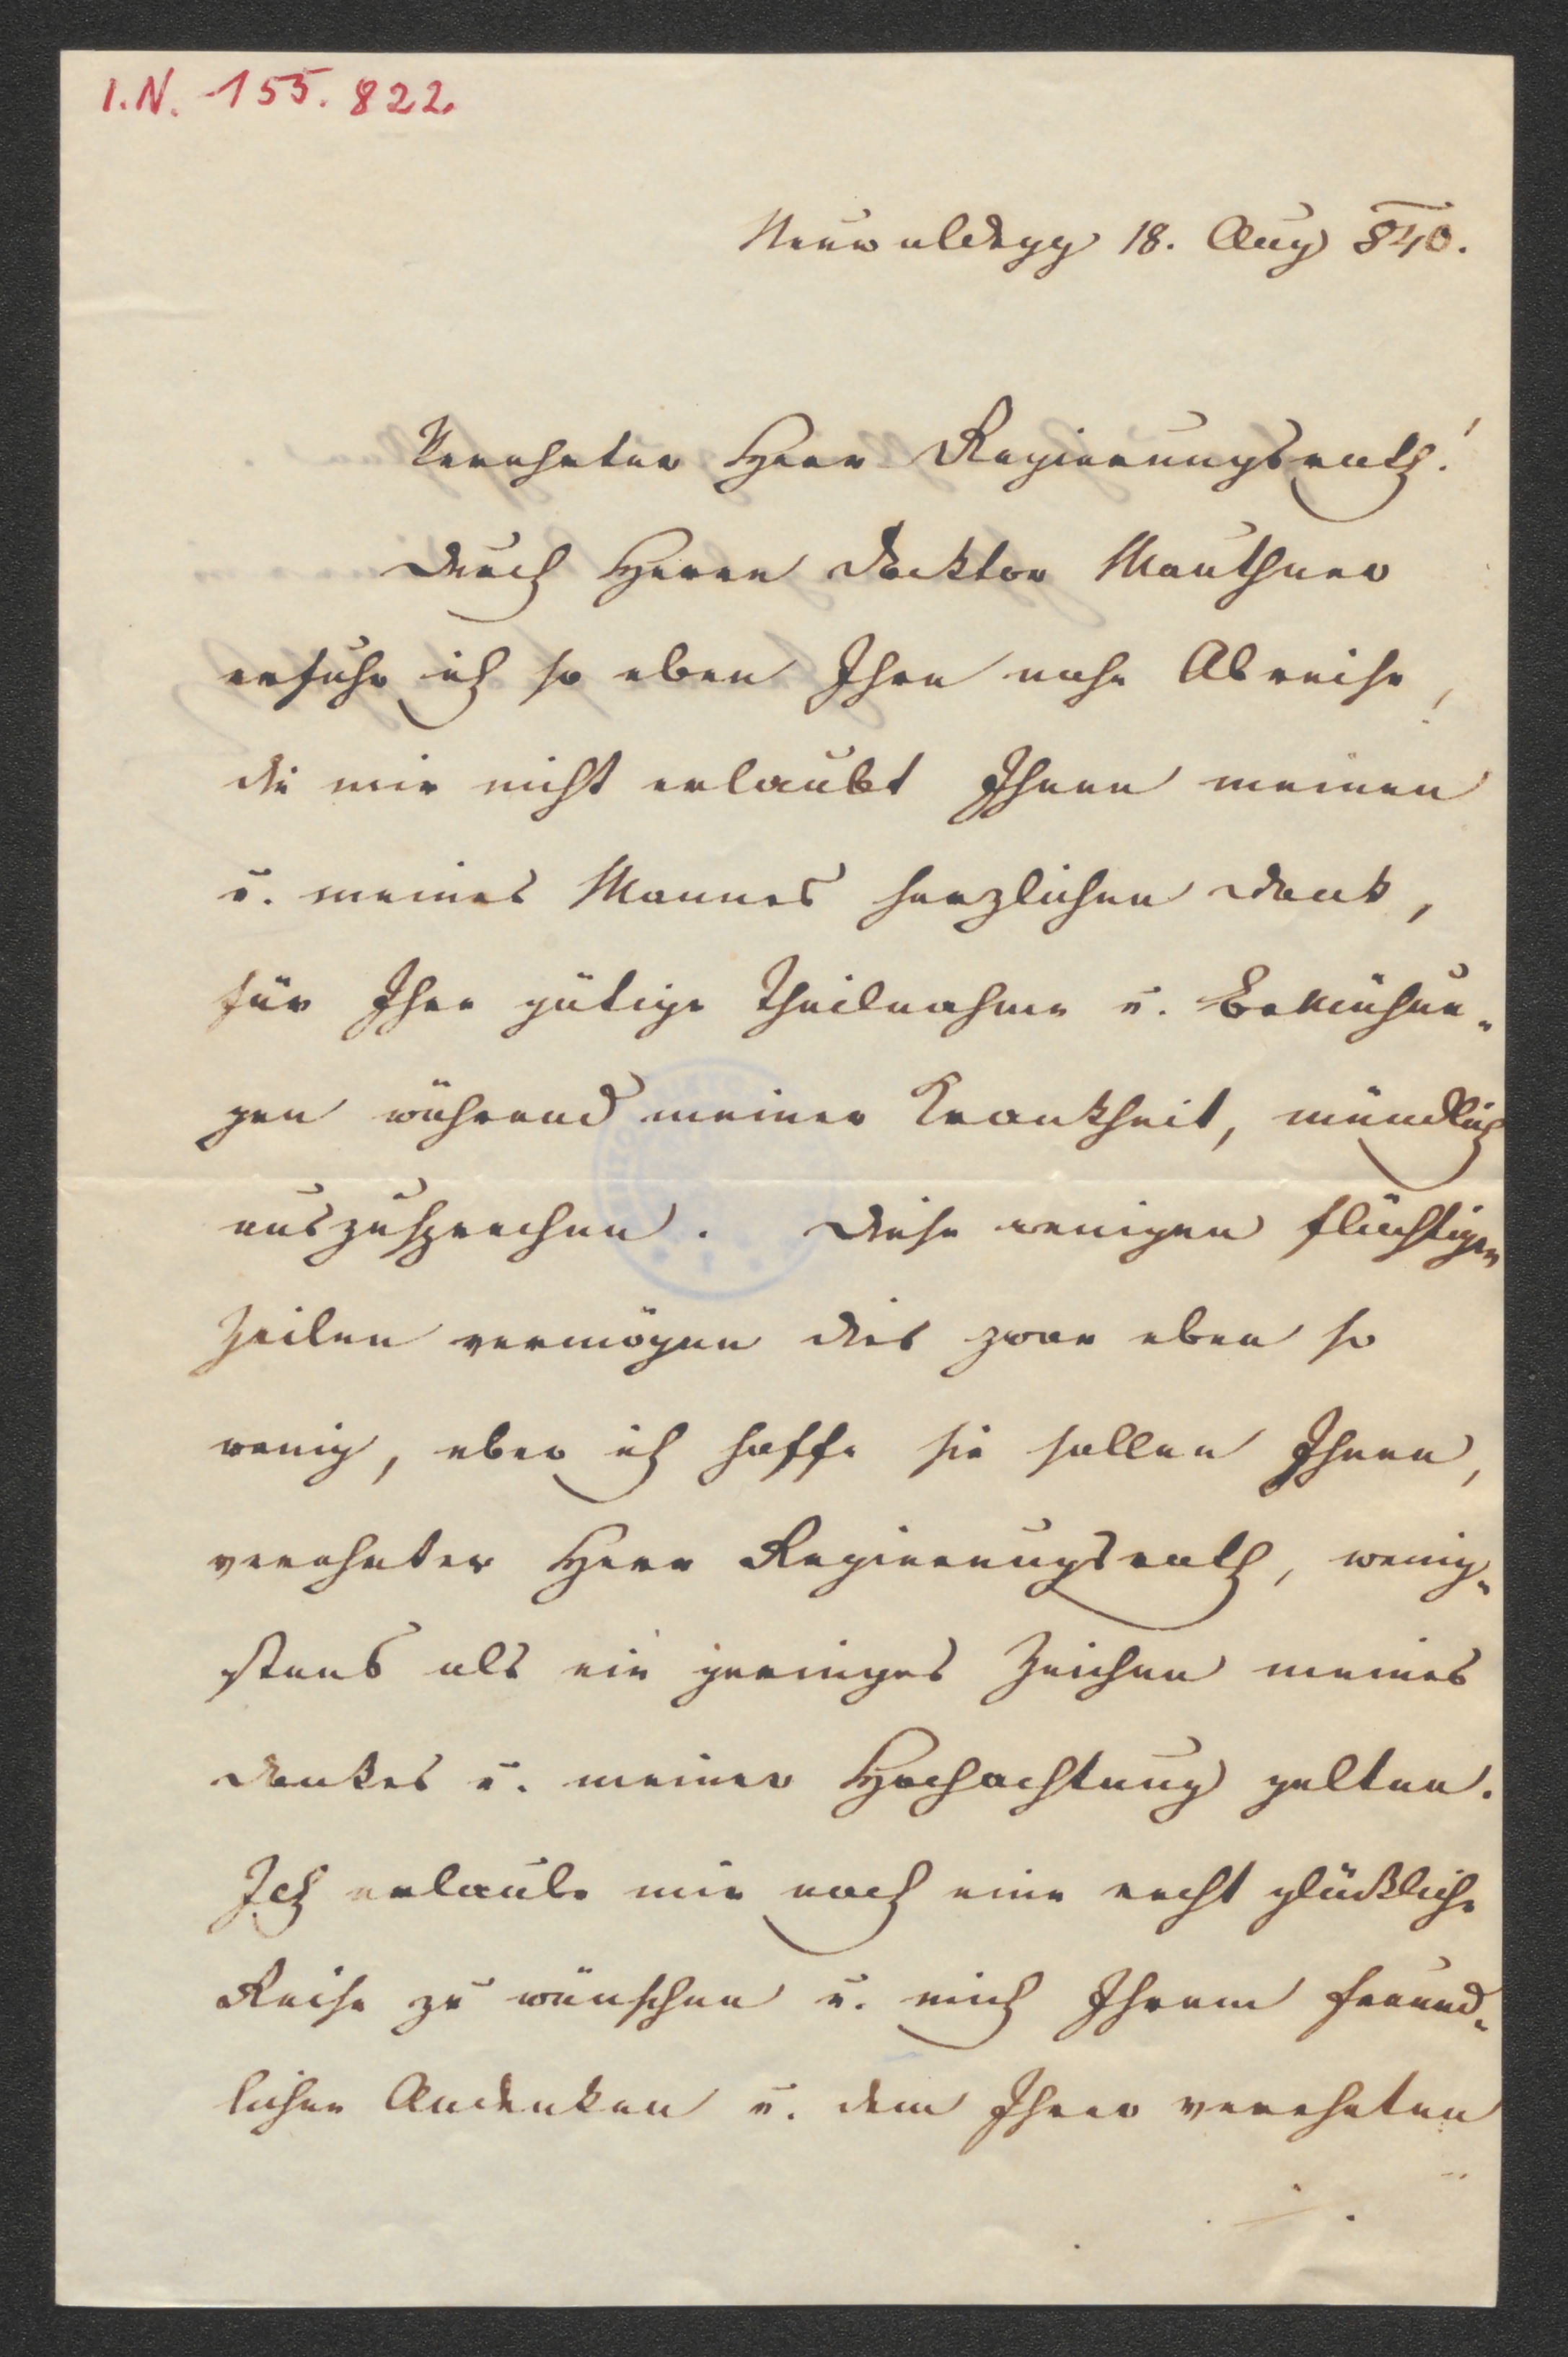 I.N. 155.822
Neuwaldegg 18. Aug 840.
Verehrter Herr Regierungsrath!
Durch Herrn Docktor Mauthner
erfuhr ich so eben Ihre nahe Abreise,
die mir nicht erlaubt Ihnen meinen
u. meines Mannes herzlichen Dank,
für Ihre gütige Theilnahme u. Bemühun-
gen während meiner Krankheit, mündlich
auszusprechen. Diese wenigen flüchtigen
Zeilen vermögen dies zwar eben so
wenig, aber ich hoffe sie sollen Ihnen,
verehrter Herr Regierungsrath, wenig-
stens als ein geringes Zeichen meines
Dankes u. meiner Hochachtung gelten.
Ich erlaube mir noch eine recht glückliche
Reise zu wünschen u. mich Ihrem freund-
lichen Andenken u. dem Ihrer verehrten